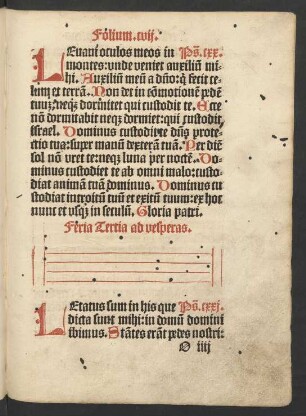 Folium. cvij.
LEvavi oculos meos in Ps. cxx.
montes: unde veniet auxiliū mi-
hi. Auxiliū meū a dño: q̄ fecit ce-
lum et terrā. Non det in cōmotionem pedē
tuū: neq̄ dormitet qui custodit te. Ecce
nō dormitabit neq̄ dormiet: qui custodit
israel. Dominus custodit te dn̄s prote-
ctio tua: super manū dexterā tuā. Per diē
sol nō uret te: neq̄ luna per noctē. Do-
minus custodiet te ab omni malo: custo-
diat animā tuā dominus. Dominus cu
stodiat introitū tuū et exitū tuum: ex hoc
nunc et usq̄ in seculū. Gloria patri.
Feria Tertia ad vesperas.
LEtatus sum in his que Ps. cxxj.
dicta sunt mihi: in domū domini
ibimus. Stātes erāt pedes nostri:
O iiij